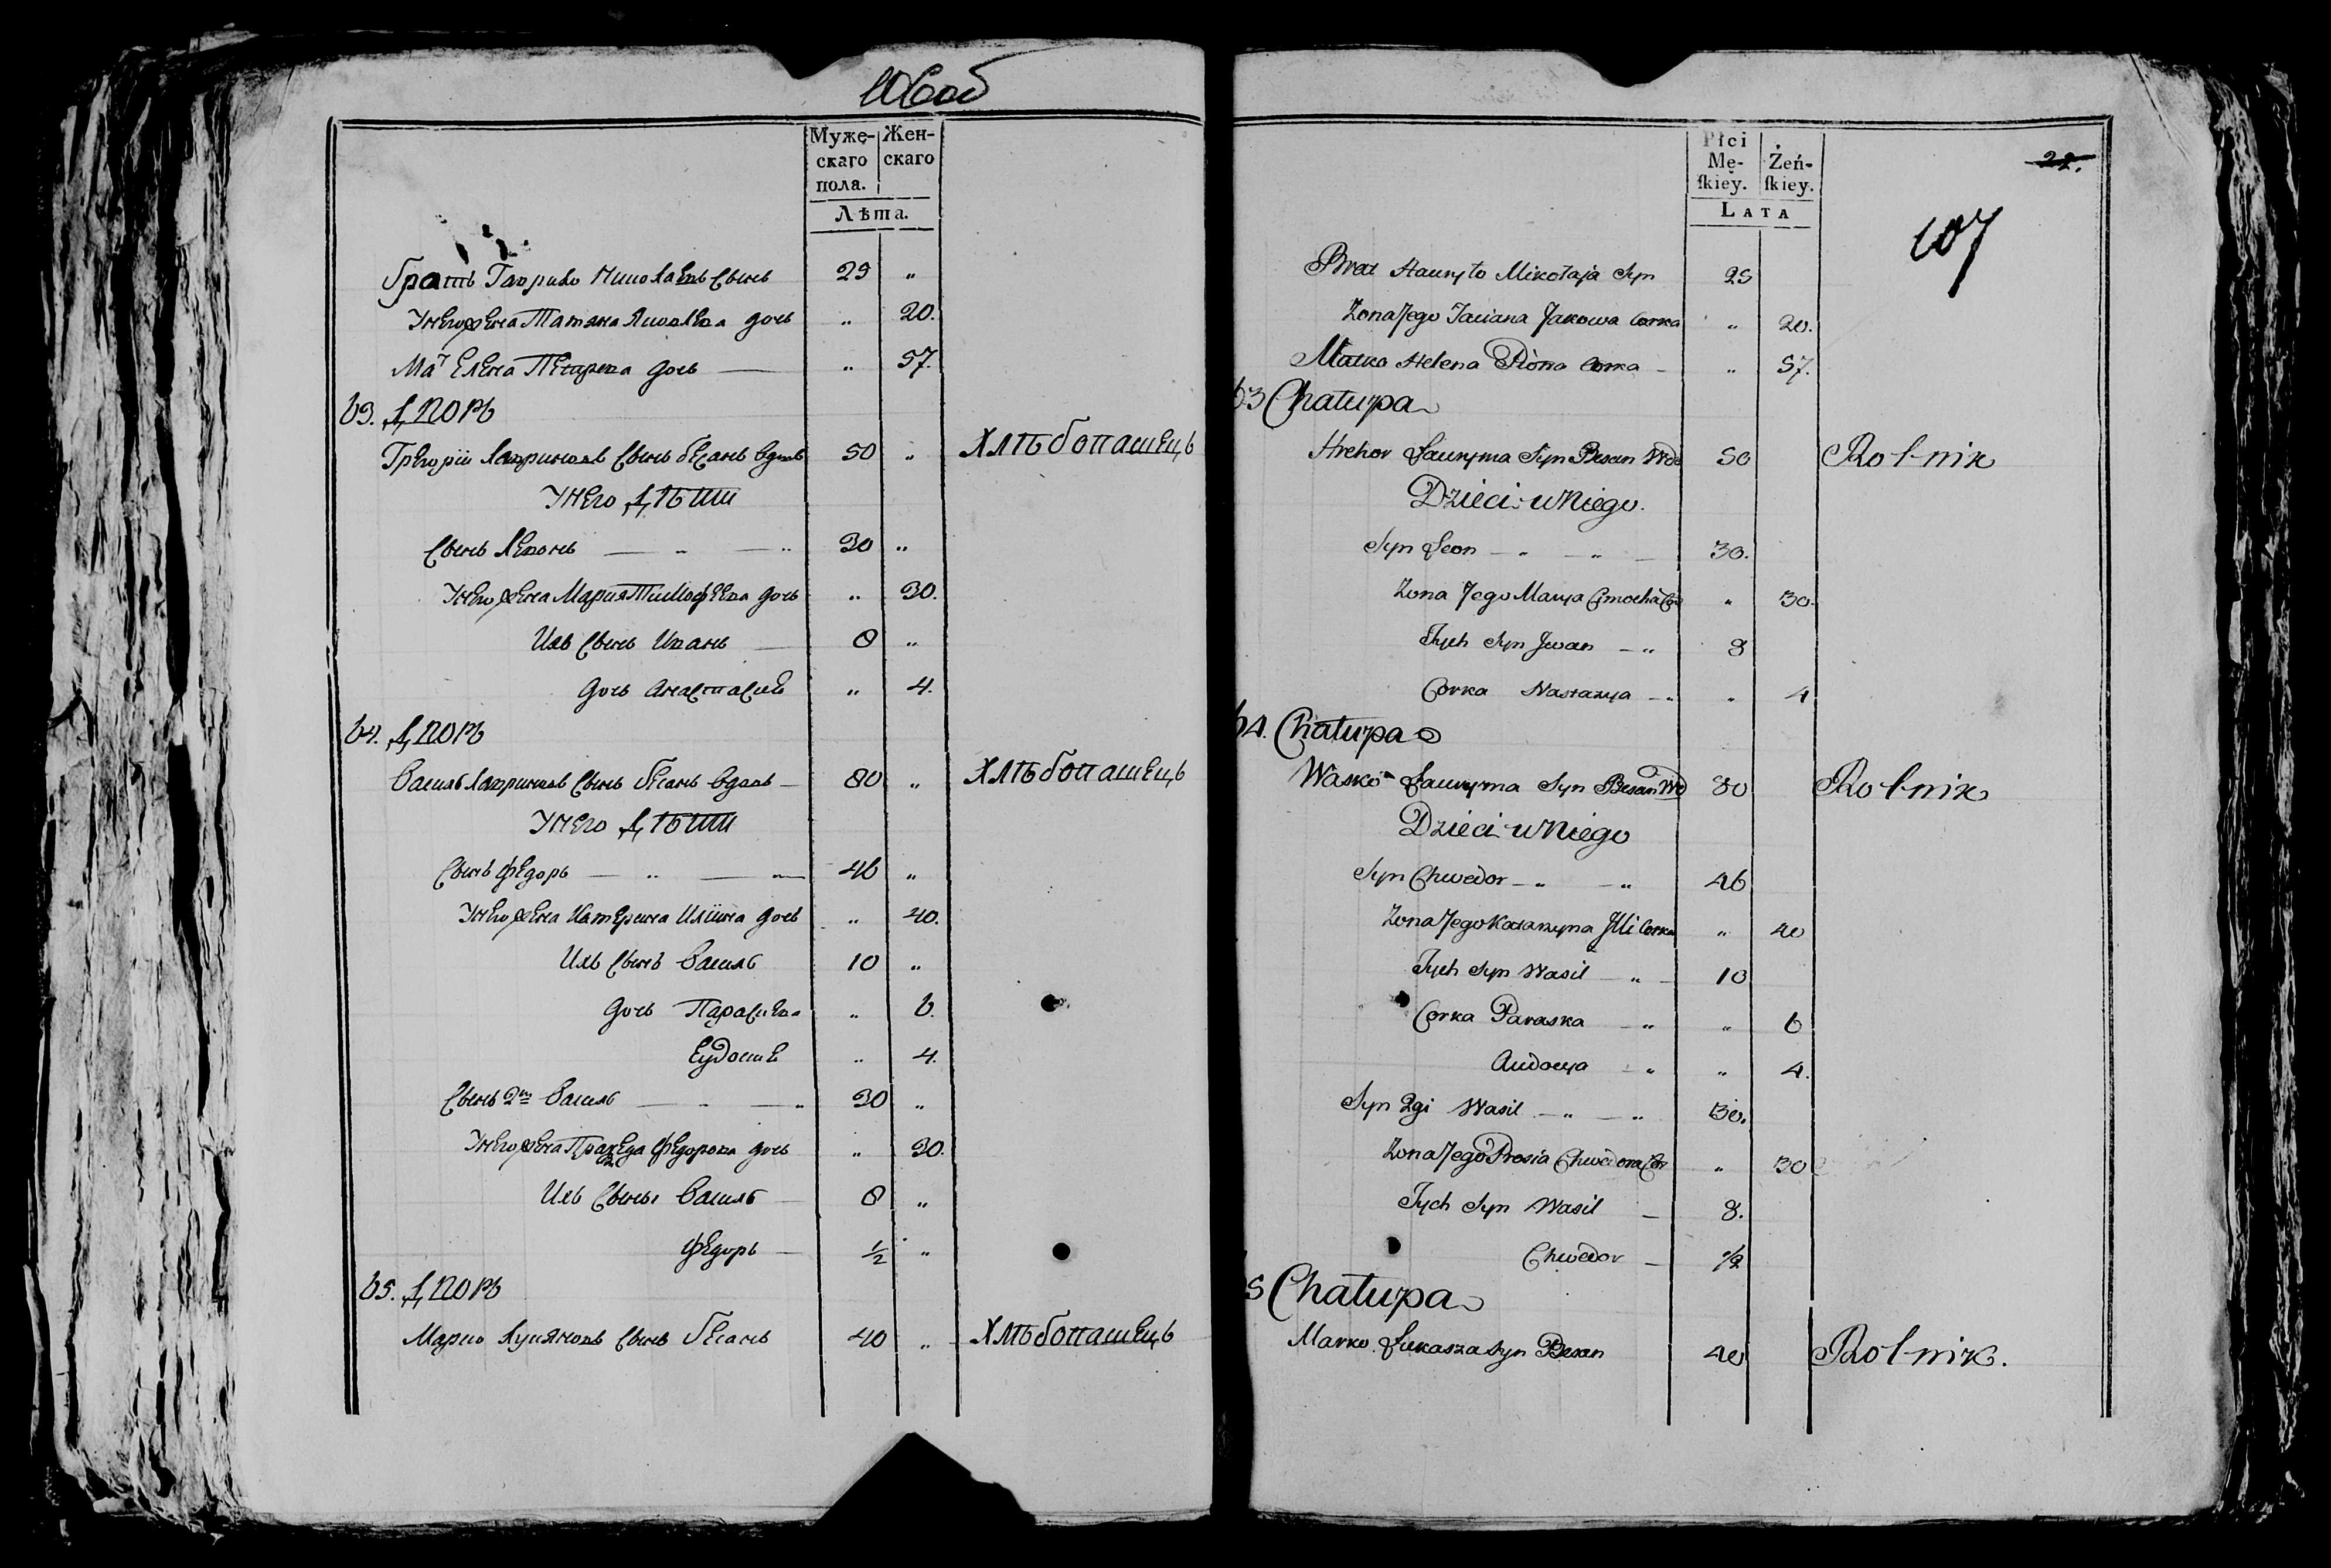 106об
Муже-
скаго
пола.
Жен-
скаго
Лѣта.
братъ Гаврило Николаевъ сынъ 29 „
У него жена Татяна Яковлева дочь „ 20.
Мать Елена Петрова дочь — „ 57.
63. Дворъ
Грегорій Лавриновъ сынъ бесанъ вдовъ 50 „ Хлѣбопашецъ
У него Дѣти
Сынъ Левонъ — „ — „ 30 „
У него жена Мария Тимофеева дочь „ 30.
Ихъ сынъ Иванъ — 8 „
дочь Анастасия „ 4.
64. Дворъ
Василь Лавриновъ сынъ бесанъ вдовъ — 80 „ Хлѣбопашецъ
У него Дѣти
Сынъ Федоръ — „ — „ 46 „
У него жена Катерина Илiина дочь „ 40.
Ихъ сынъ Василь 10 „
дочь Параскева „ 6.
Еудокия „ 4.
Сынъ 2й Василь — „ — „ 30 „
У него жена Федорова дочь „ 30.
Ихъ сыны Василь — 8 „
Федоръ — 1/2 „
65. Дворъ
Марко Лукяновъ сынъ бесанъ 40 „ Хлѣбопашецъ
Płci
Mę-
ſkiey.
Żeń-
ſkiey.
LATA
28.
107
Brat Hauryło Mikołaja Syn 29
Zona Jego Taciana Jakowa Corka „ 20.
Matka Helena Piotra Corka – „ 57.
63 Chałupa
Hrehor Łauryna Syn Besan Wdo 50 Rolnik
Dzieci u Niego.
Syn Leon – „ – „ – 30.
Zona Jego Marya Cimocha Cor „ 30.
Tych Syn Jwan – „ 8
Corka Nastazya – „ „ 4
64. Chałupa
Wasko Łauryna Syn Besan Wd 80 Rolnik
Dzieci u Niego
Syn Chwedor – „ – „ 46
Zona Jego Katarzyna Jlli Corka „ 40
Tych Syn Wasil – „ – 10
Corka Paraska – „ „ 6
Audocya – „ „ 4.
Syn 2gi Wasil – „ – „ 30.
Zona Jego Prosia Chwedora Cor „ 30
Tych Syn Wasil – 8.
Chwedor – 1/2
5 Chałupa
Marko Łukasza Syn Besan 40 Rolnik.